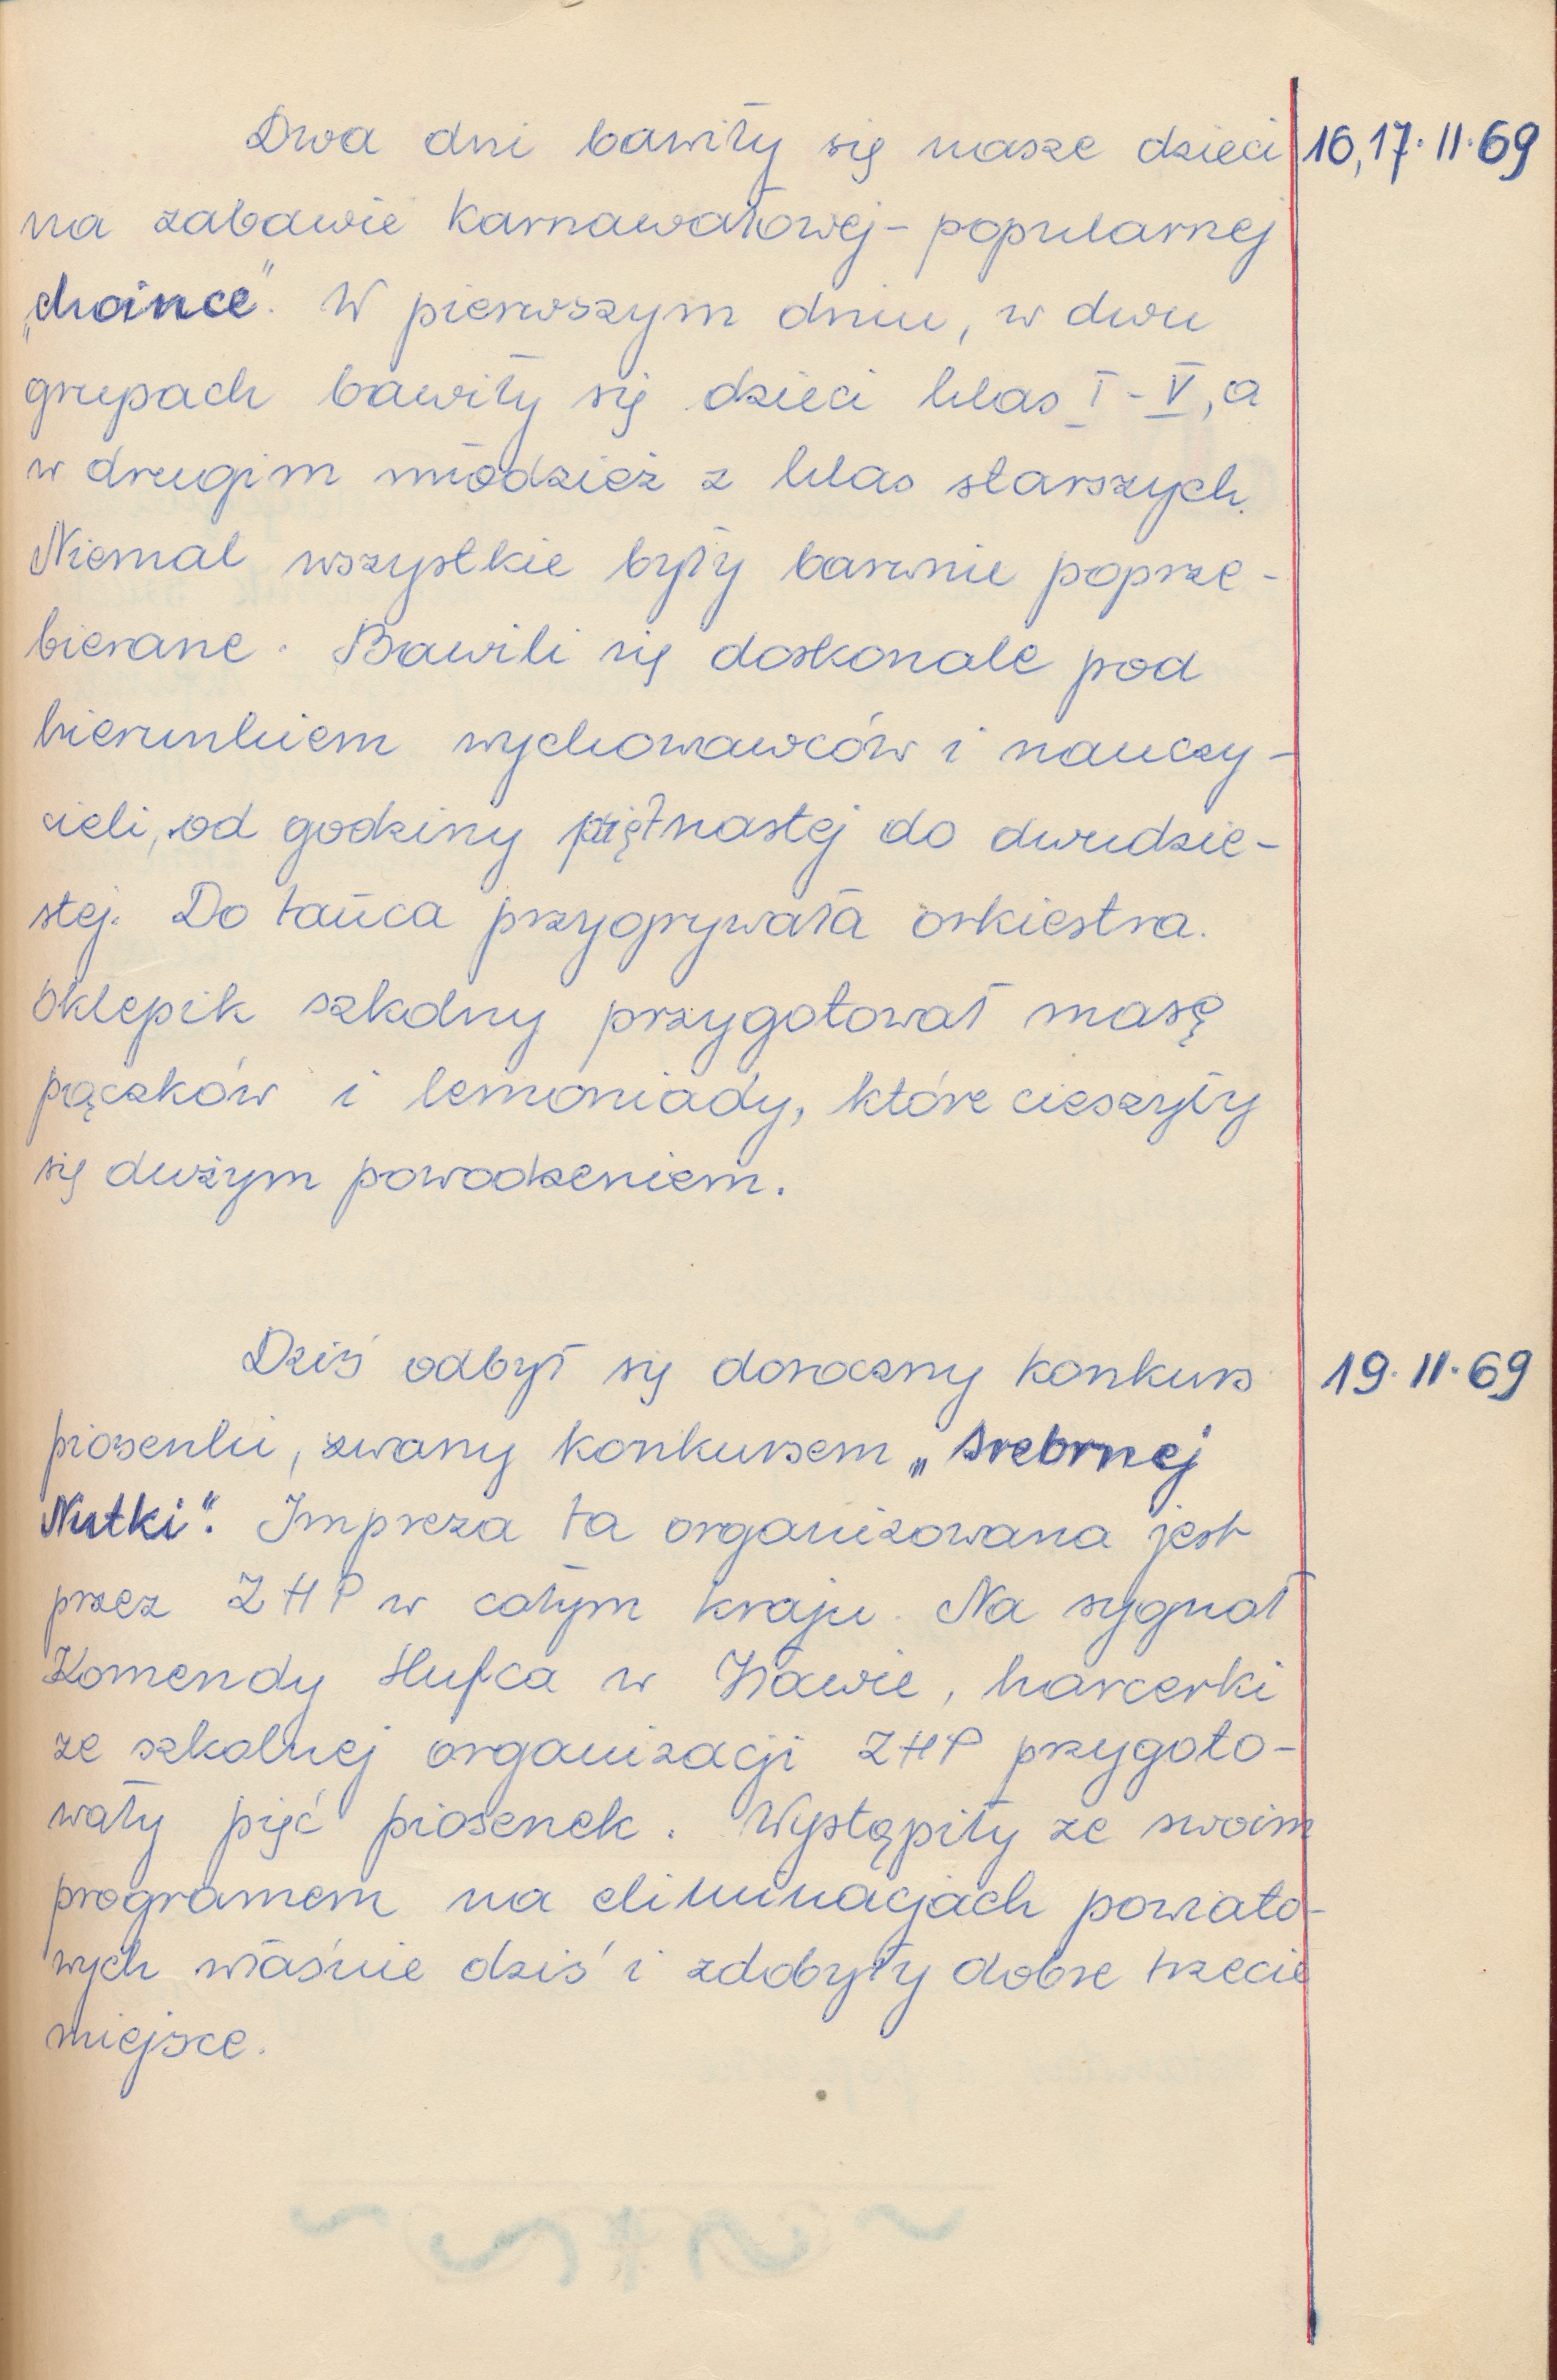 Dwa dni bawiły się nasze dzieci 16,17.II.69
na zabawie karnawałowej - popularnej
„choince". W pierwszym dniu, w dwu
grupach bawiły się dzieci klas I - V, a
w drugim młodzież z klas starszych.
Niemal wszystkie były barwnie poprze-
bierane. Bawili się doskonale pod
kierunkiem wychowawców i nauczy-
cieli, od godziny piętnastej do dwudzie-
stej. Do tańca przygrywała orkiestra.
Sklepik szkolny przygotował masę
pączków i lemoniady, które cieszyły
się dużym powodzeniem.
Dziś odbył się doroczny konkurs 19.II.69
piosenki, zwany konkursem „Srebrnej
Nutki". Impreza ta organizowana jest
przez ZHP w całym kraju. Na sygnał
Komendy Hufca w Iławie, harcerki
ze szkolnej organizacji ZHP przygoto-
wały pięć piosenek. Wystąpiły ze swoim
programem na eliminacjach powiato-
wych właśnie dziś i zdobyły dobre trzecie
miejsce.